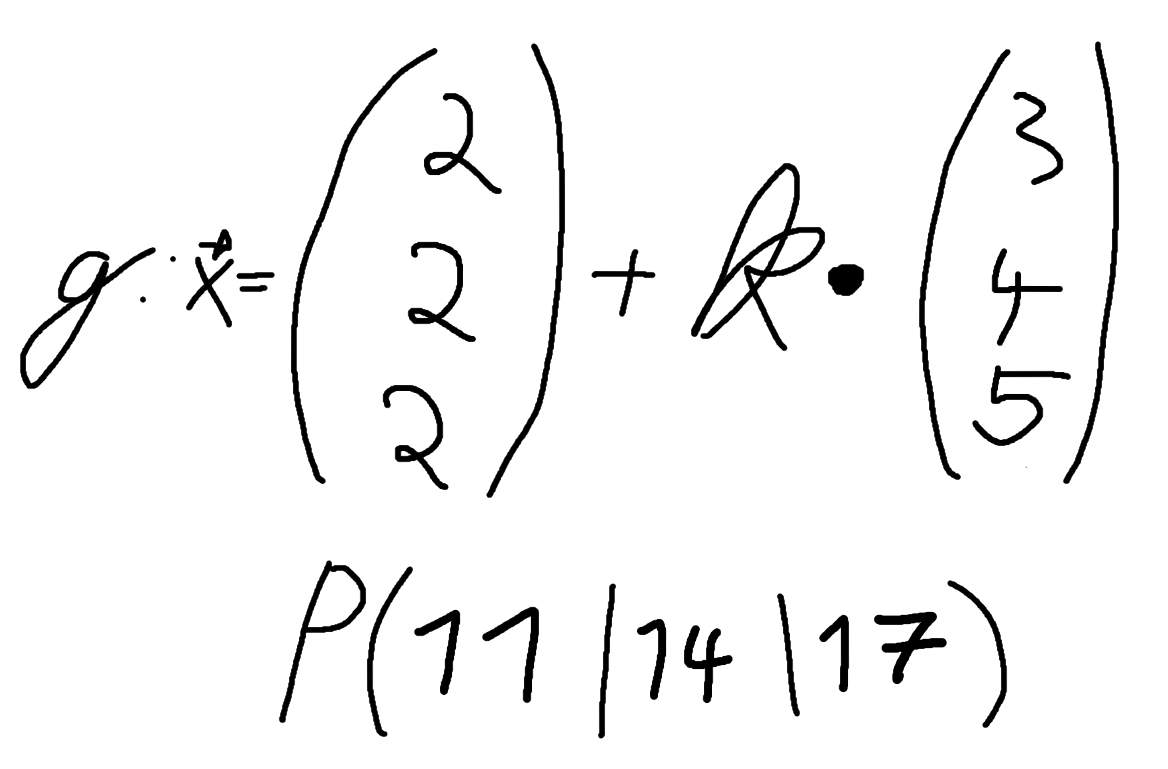 g: x⃗ = (2 2 2) + k • (3 4 5)
P(11|14|17)